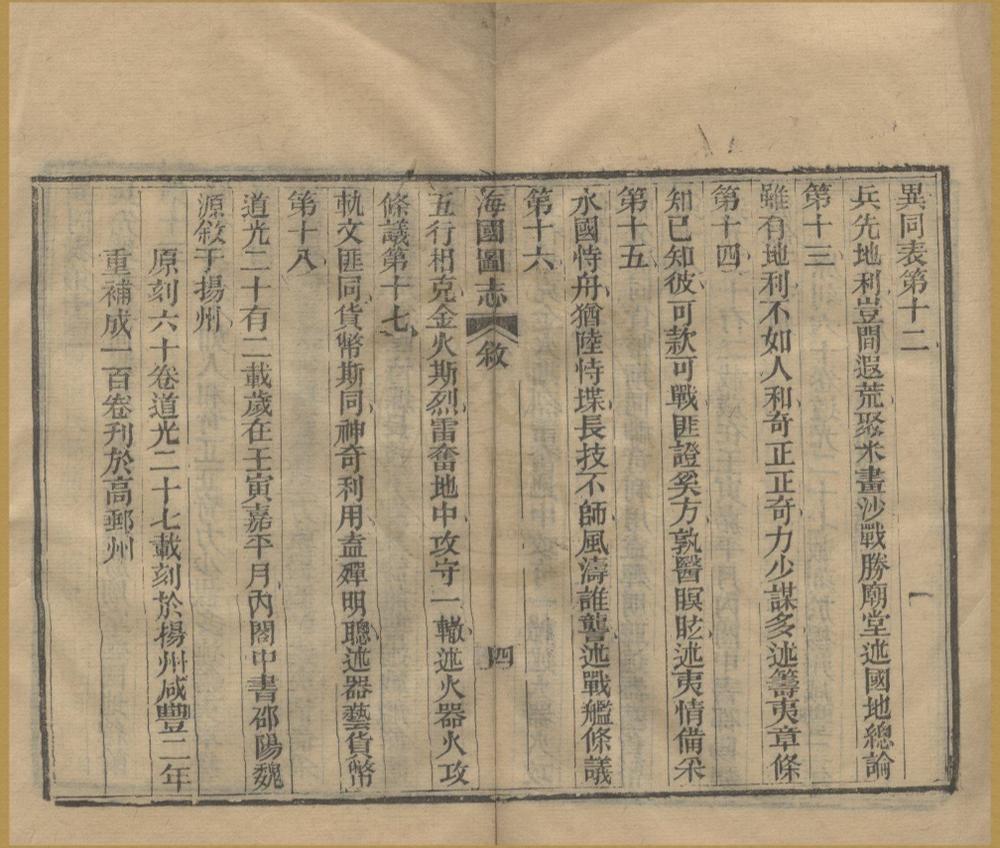 異同表第十二
兵先地利豈間遐荒聚米畫沙戰勝廟堂述國地總論
第十三
雖有地利不如人和奇正正奇力少謀多述籌夷章條
第十四
知己知彼可款可戰匪證奚方孰醫瞑眩述夷情備采
第十五
水國恃舟猶陸恃堞長技不師風濤誰讋述戰艦條議
第十六
海國圖志
敘
四
五行相克金火斯烈雷奮地中攻守一轍述火器火攻
條議第十七
軌文匪同貨幣斯同神奇利用盍殫明聰述器藝貨幣
第十八
道光二十有二載歲在壬寅嘉平月內閣中書邵陽魏
源敘于揚州
原刻六十卷道光二十七載刻於揚州咸豐二年
重補成一百卷刊於高郵州